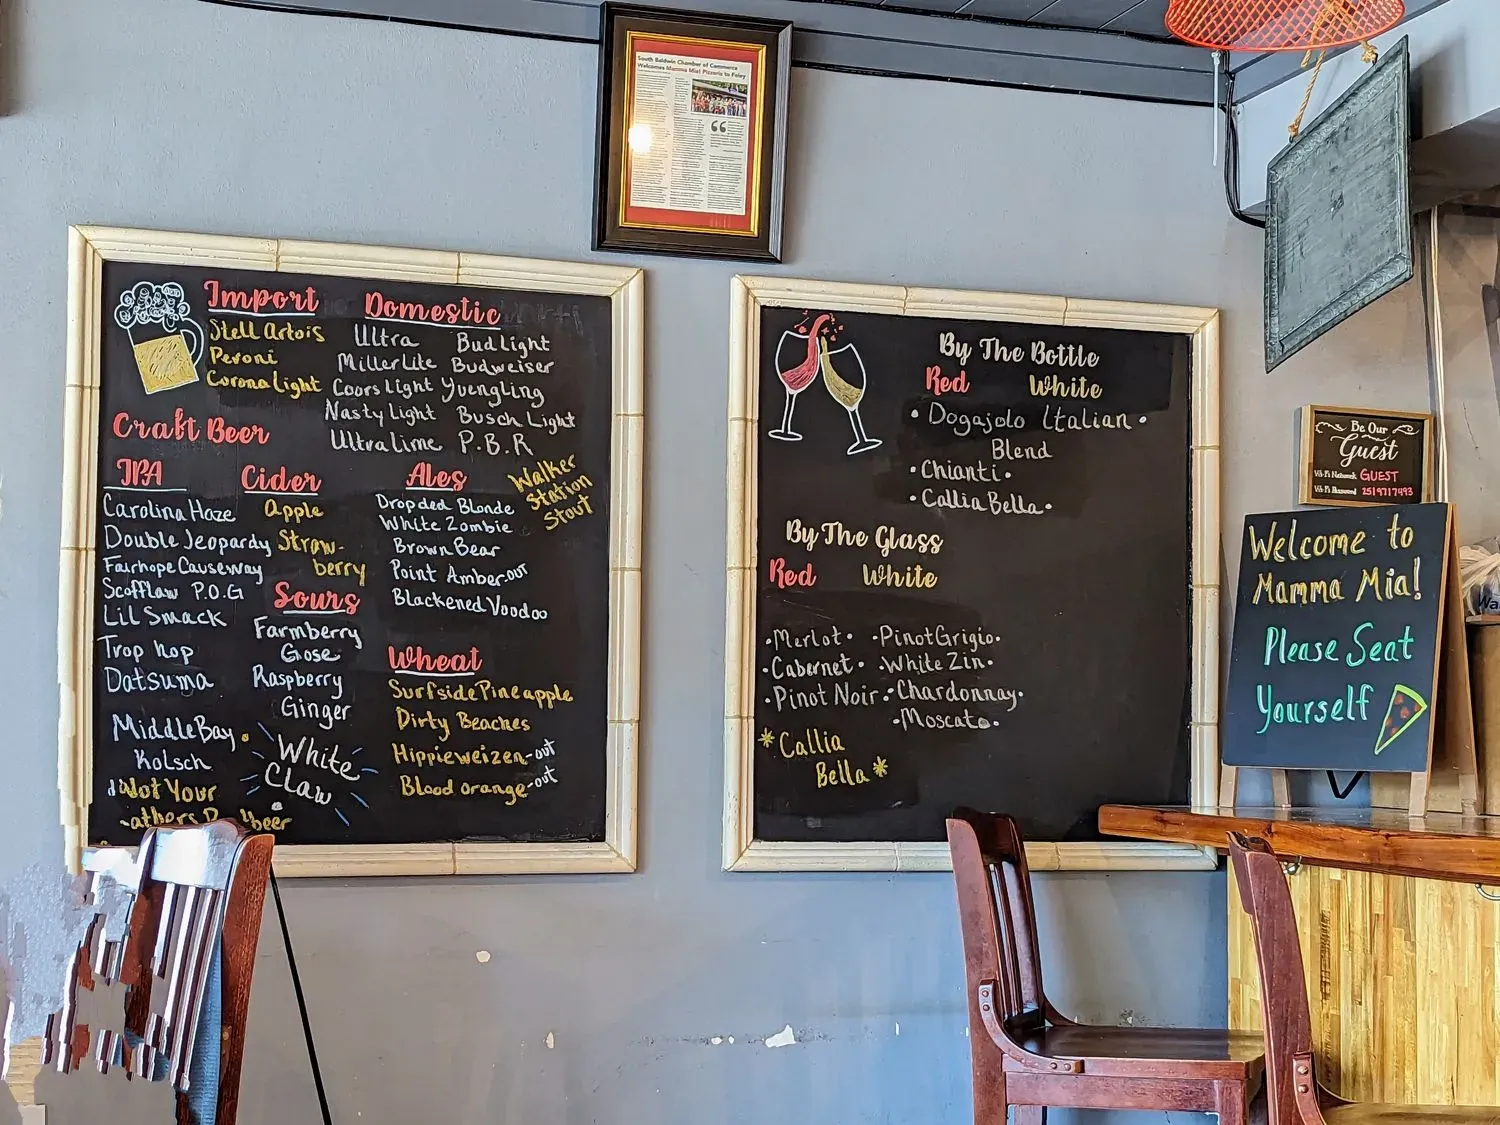 South Baldwin Chamber of Commerce
Welcomes Mamma Mia! Pizzeria to Foley
Import
Stell Artois
Peroni
Corona Light
Domestic
Ultra Bud Light
Miller Lite Budweiser
Coors Light Yuengling
Nasty Light Busch Light
Ultra lime P.B.R
Craft Beer
IPA
Carolina Haze
Double Jeopardy
Fairhope Causeway
Scofflaw P.O.G
Lil Smack
Trop hop
Datsuma
Middle Bay
Kolsch
Not Your
Cider
Apple
Straw-
berry
Sours
Farmberry
Gose
Raspberry
Ginger
White
Claw
Ales
Dropded Blonde
White Zombie
Brown Bear
Point Amber-out
Blackened Voodoo
Walker
Station
Stout
Wheat
Surfside Pineapple
Dirty Beaches
Hippieweizen-out
Blood orange-out
By The Bottle
Red White
• Dogajolo Italian •
Blend
• Chianti •
• Callia Bella •
By The Glass
Red White
• Merlot • • Pinot Grigio •
• Cabernet • • White Zin •
• Pinot Noir • • Chardonnay •
• Moscato •
* Callia
Bella *
Be Our
Guest
Wi-Fi Network GUEST
Wi-Fi Password 2519717493
Welcome to
Mamma Mia!
Please Seat
Yourself